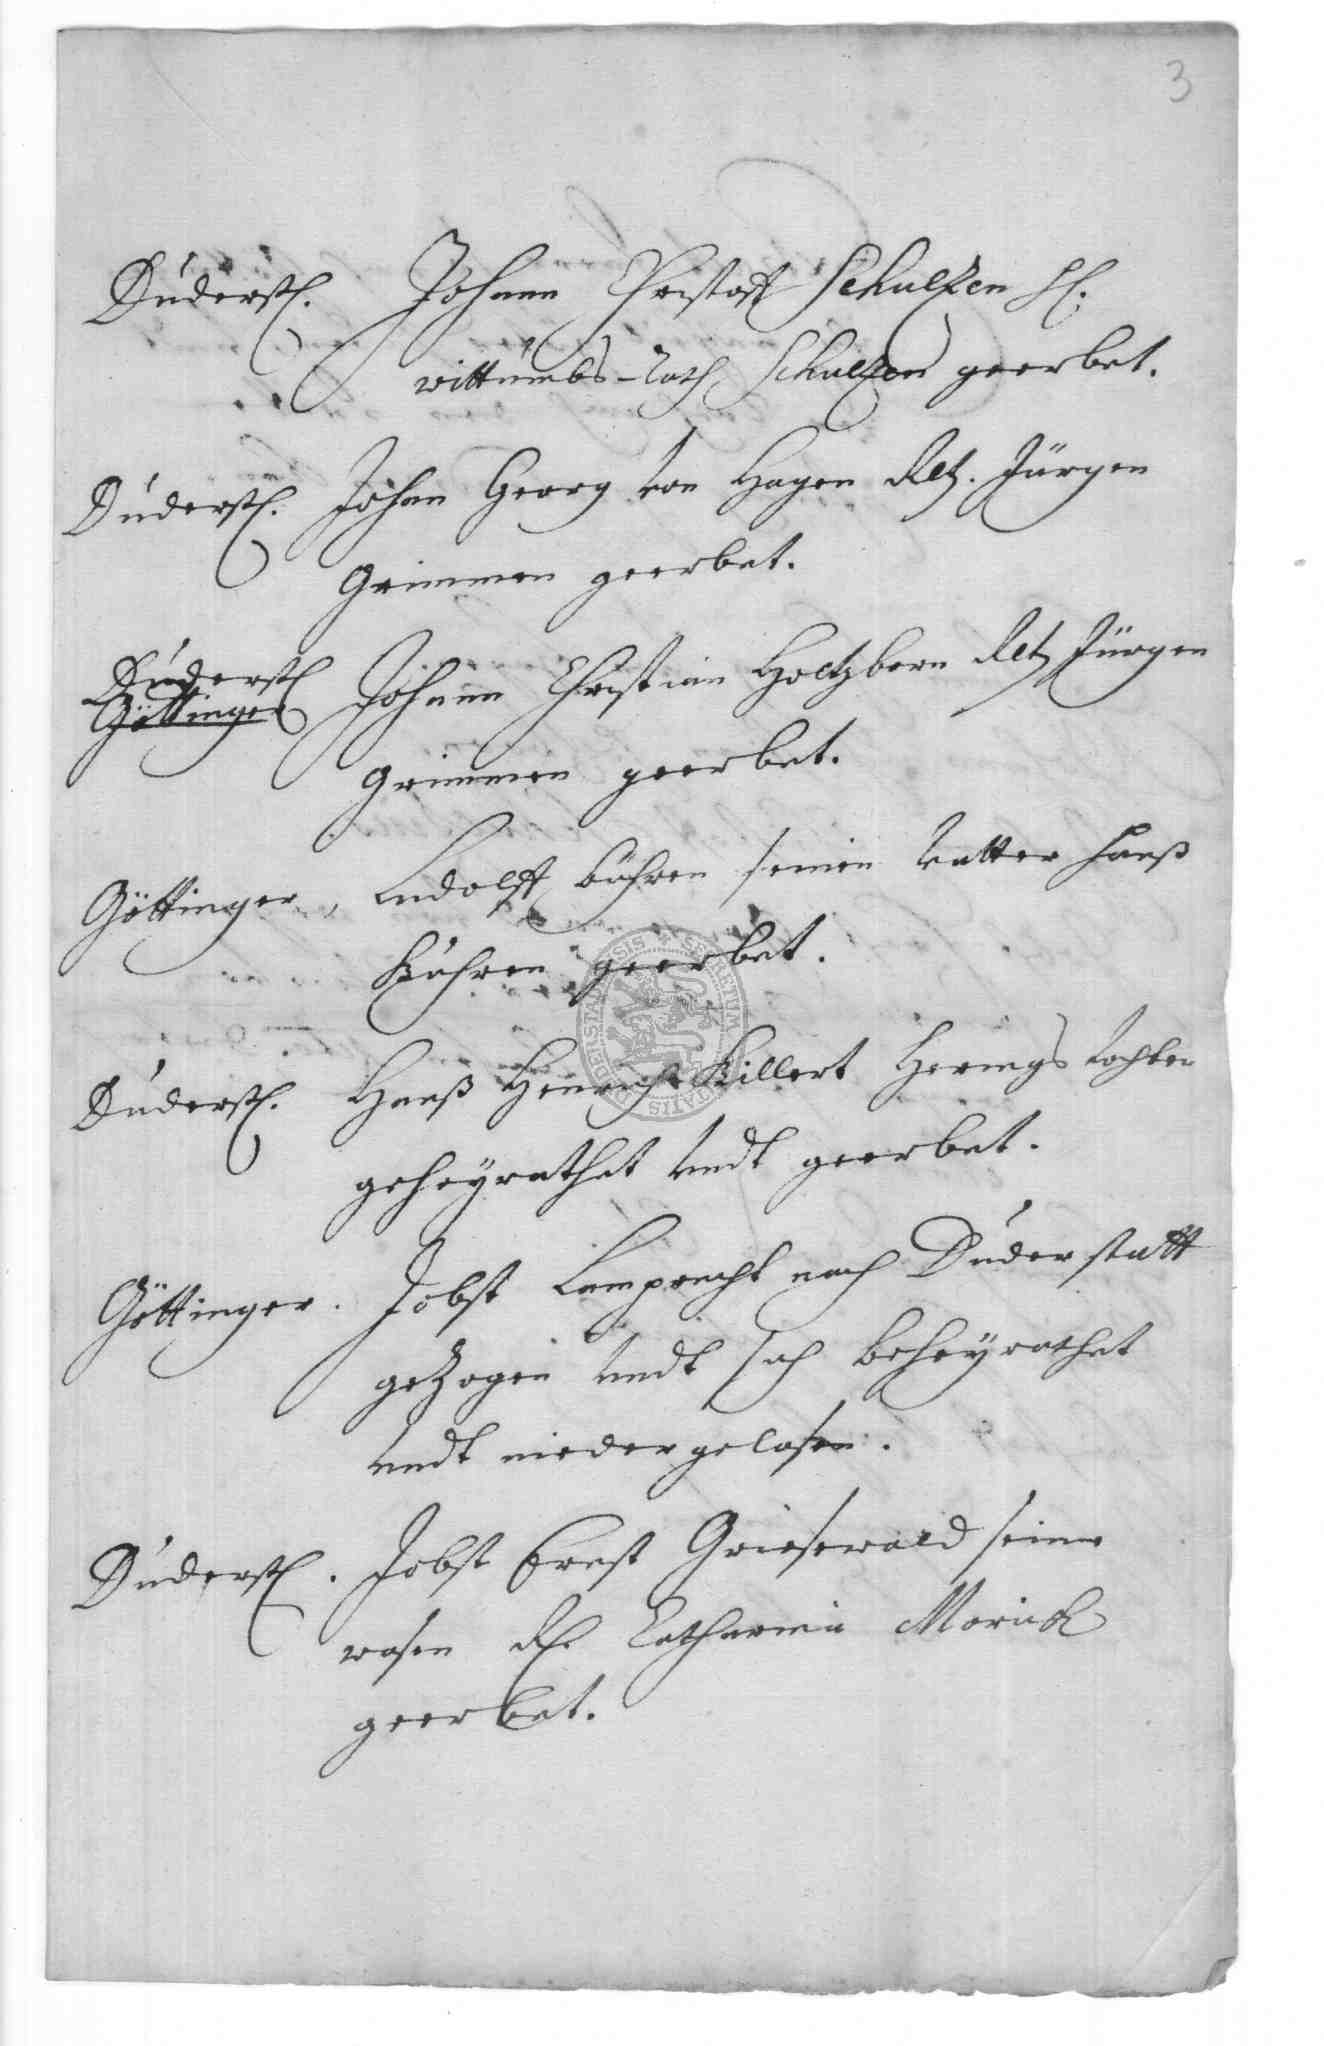 3
Duderst. Johann Christoff Schultzen H.
wittumbs-Cath Schultzen geerbet.
Duderst. Johan Georg von Hagen Alt. Jürgen
Grimmen geerbet.
Duderst
Göttinger Johann Christian Holtzborn Alt Jürgen
Grimmen geerbet.
Göttinger, Ludolff bühren seinen Vatter Hanß
Bühren geerbet.
Duderst. Hanß Henrich Killert Herings tochter
geheyrathet undt geerbet.
Göttinger. Jobst Lamprecht nach Duderstatt
gezogen undt sich beheyrathet
undt niedergelasen.
Duderst. Jobst Ernst Griesewald seine
wasen Catharina
geerbet.
SECRETUM CIVITATIS DUDERSTADENSIS